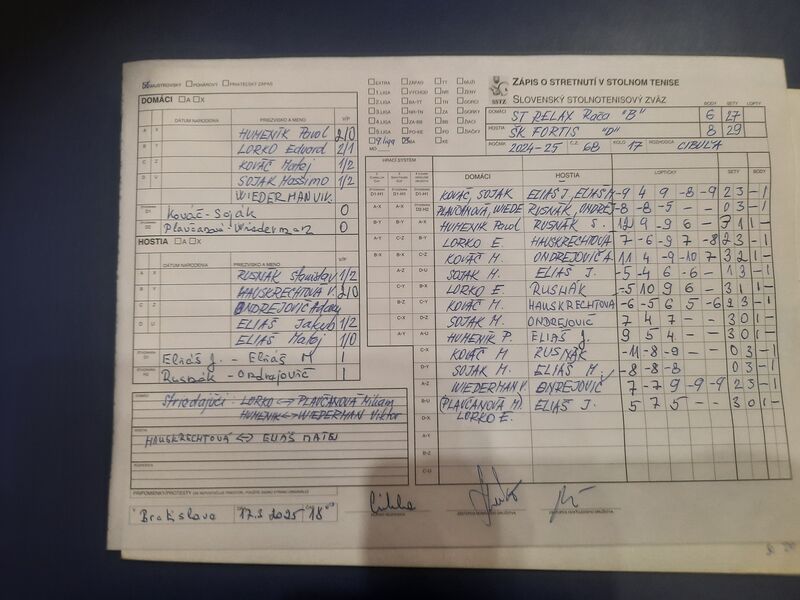 MAJSTROVSKÝ POHÁROVÝ PRIATEĽSKÝ ZÁPAS
DOMÁCI A X
DÁTUM NARODENIA PRIEZVISKO A MENO V/P
A X HUMENÍK Pavol 2/0
B Y LORKO Eduard 2/1
C Z KOVÁČ Matej 1/2
D U SOJAK Massimo 1/2
WIEDERMAN VIK.
Kováč - Sojak 0
Plavčanová - Wiederman 0
HOSTIA A X
DÁTUM NARODENIA PRIEZVISKO A MENO V/P
A X RUSNÁK Stanislav 1/2
B Y HAUSKRECHTOVÁ V. 2/0
C Z ONDREJOVIČ Adam
D U ELIÁŠ Jakub 1/2
ELIÁŠ Matej 1/0
Eliáš J. - Eliáš M 1
Rusnák - Ondrejovič 1
DOMÁCI
Striedajúci: LORKO <-> PLAVČANOVÁ Miriam
HUMENIK <-> WIEDERMAN Viktor
HOSTIA
HAUSKRECHTOVÁ <-> ELIÁŠ MATEJ
ROZHODCA
PRIPOMIENKY/PROTESTY
Bratislava 17.3.2025 "18"
EXTRA ZÁPAD TT MUŽI
1. LIGA VÝCHOD NR ŽENY
2. LIGA BA-TT TN DORCI
3. LIGA NR-TN ZA DORKY
4. LIGA ZA BB ŽIACI
5. LIGA PO-KE PO ŽIAČKY
BA KE
SSTZ
ZÁPIS O STRETNUTÍ V STOLNOM TENISE
SLOVENSKÝ STOLNOTENISOVÝ ZVÄZ
BODY SETY LOPTY
DOMÁCI ST RELAX Rača "B" 6 27
HOSTIA ŠK FORTIS "D" 8 29
ROČNÍK 2024-25 Č.Z. 68 KOLO 17 ROZHODCA CIBUĽA
HRACÍ SYSTÉM
DOMÁCI HOSTIA LOPTIČKY SETY BODY
KOVÁČ, SOJAK ELIÁŠ J, ELIÁŠ M -9 4 9 -8 -9 2 3 - 1
PLAVČANOVÁ, WIEDE RUSNÁK, ONDREJ -8 -8 -5 - - 0 3 - 1
HUMENÍK Pavol RUSNÁK S. 12 9 -9 6 - 3 1 1 -
LORKO E. HAUSKRECHTOVÁ 7 -6 -9 7 -8 2 3 - 1
KOVÁČ M. ONDREJOVIČ A 11 4 -9 -10 7 3 2 1 -
SOJAK M. ELIÁŠ J. -5 -4 6 -6 - 1 3 - 1
LORKO E. RUSNÁK -5 10 9 6 - 3 1 1 -
KOVÁČ M. HAUSKRECHTOVÁ -6 -5 6 5 -6 2 3 - 1
SOJAK M. ONDREJOVIČ 7 4 7 - - 3 0 1 -
HUMENÍK P. ELIÁŠ J. 9 5 4 - - 3 0 1 -
KOVÁČ M. RUSNÁK -11 -8 -9 - - 0 3 - 1
SOJAK M. ELIÁŠ M. -8 -8 -8 0 3 - 1
WIEDERMAN V. ONDREJOVIČ 7 -7 9 -9 -9 2 3 - 1
(PLAVČANOVÁ M.) ELIÁŠ J. 5 7 5 - - 3 0 1 -
LORKO E.